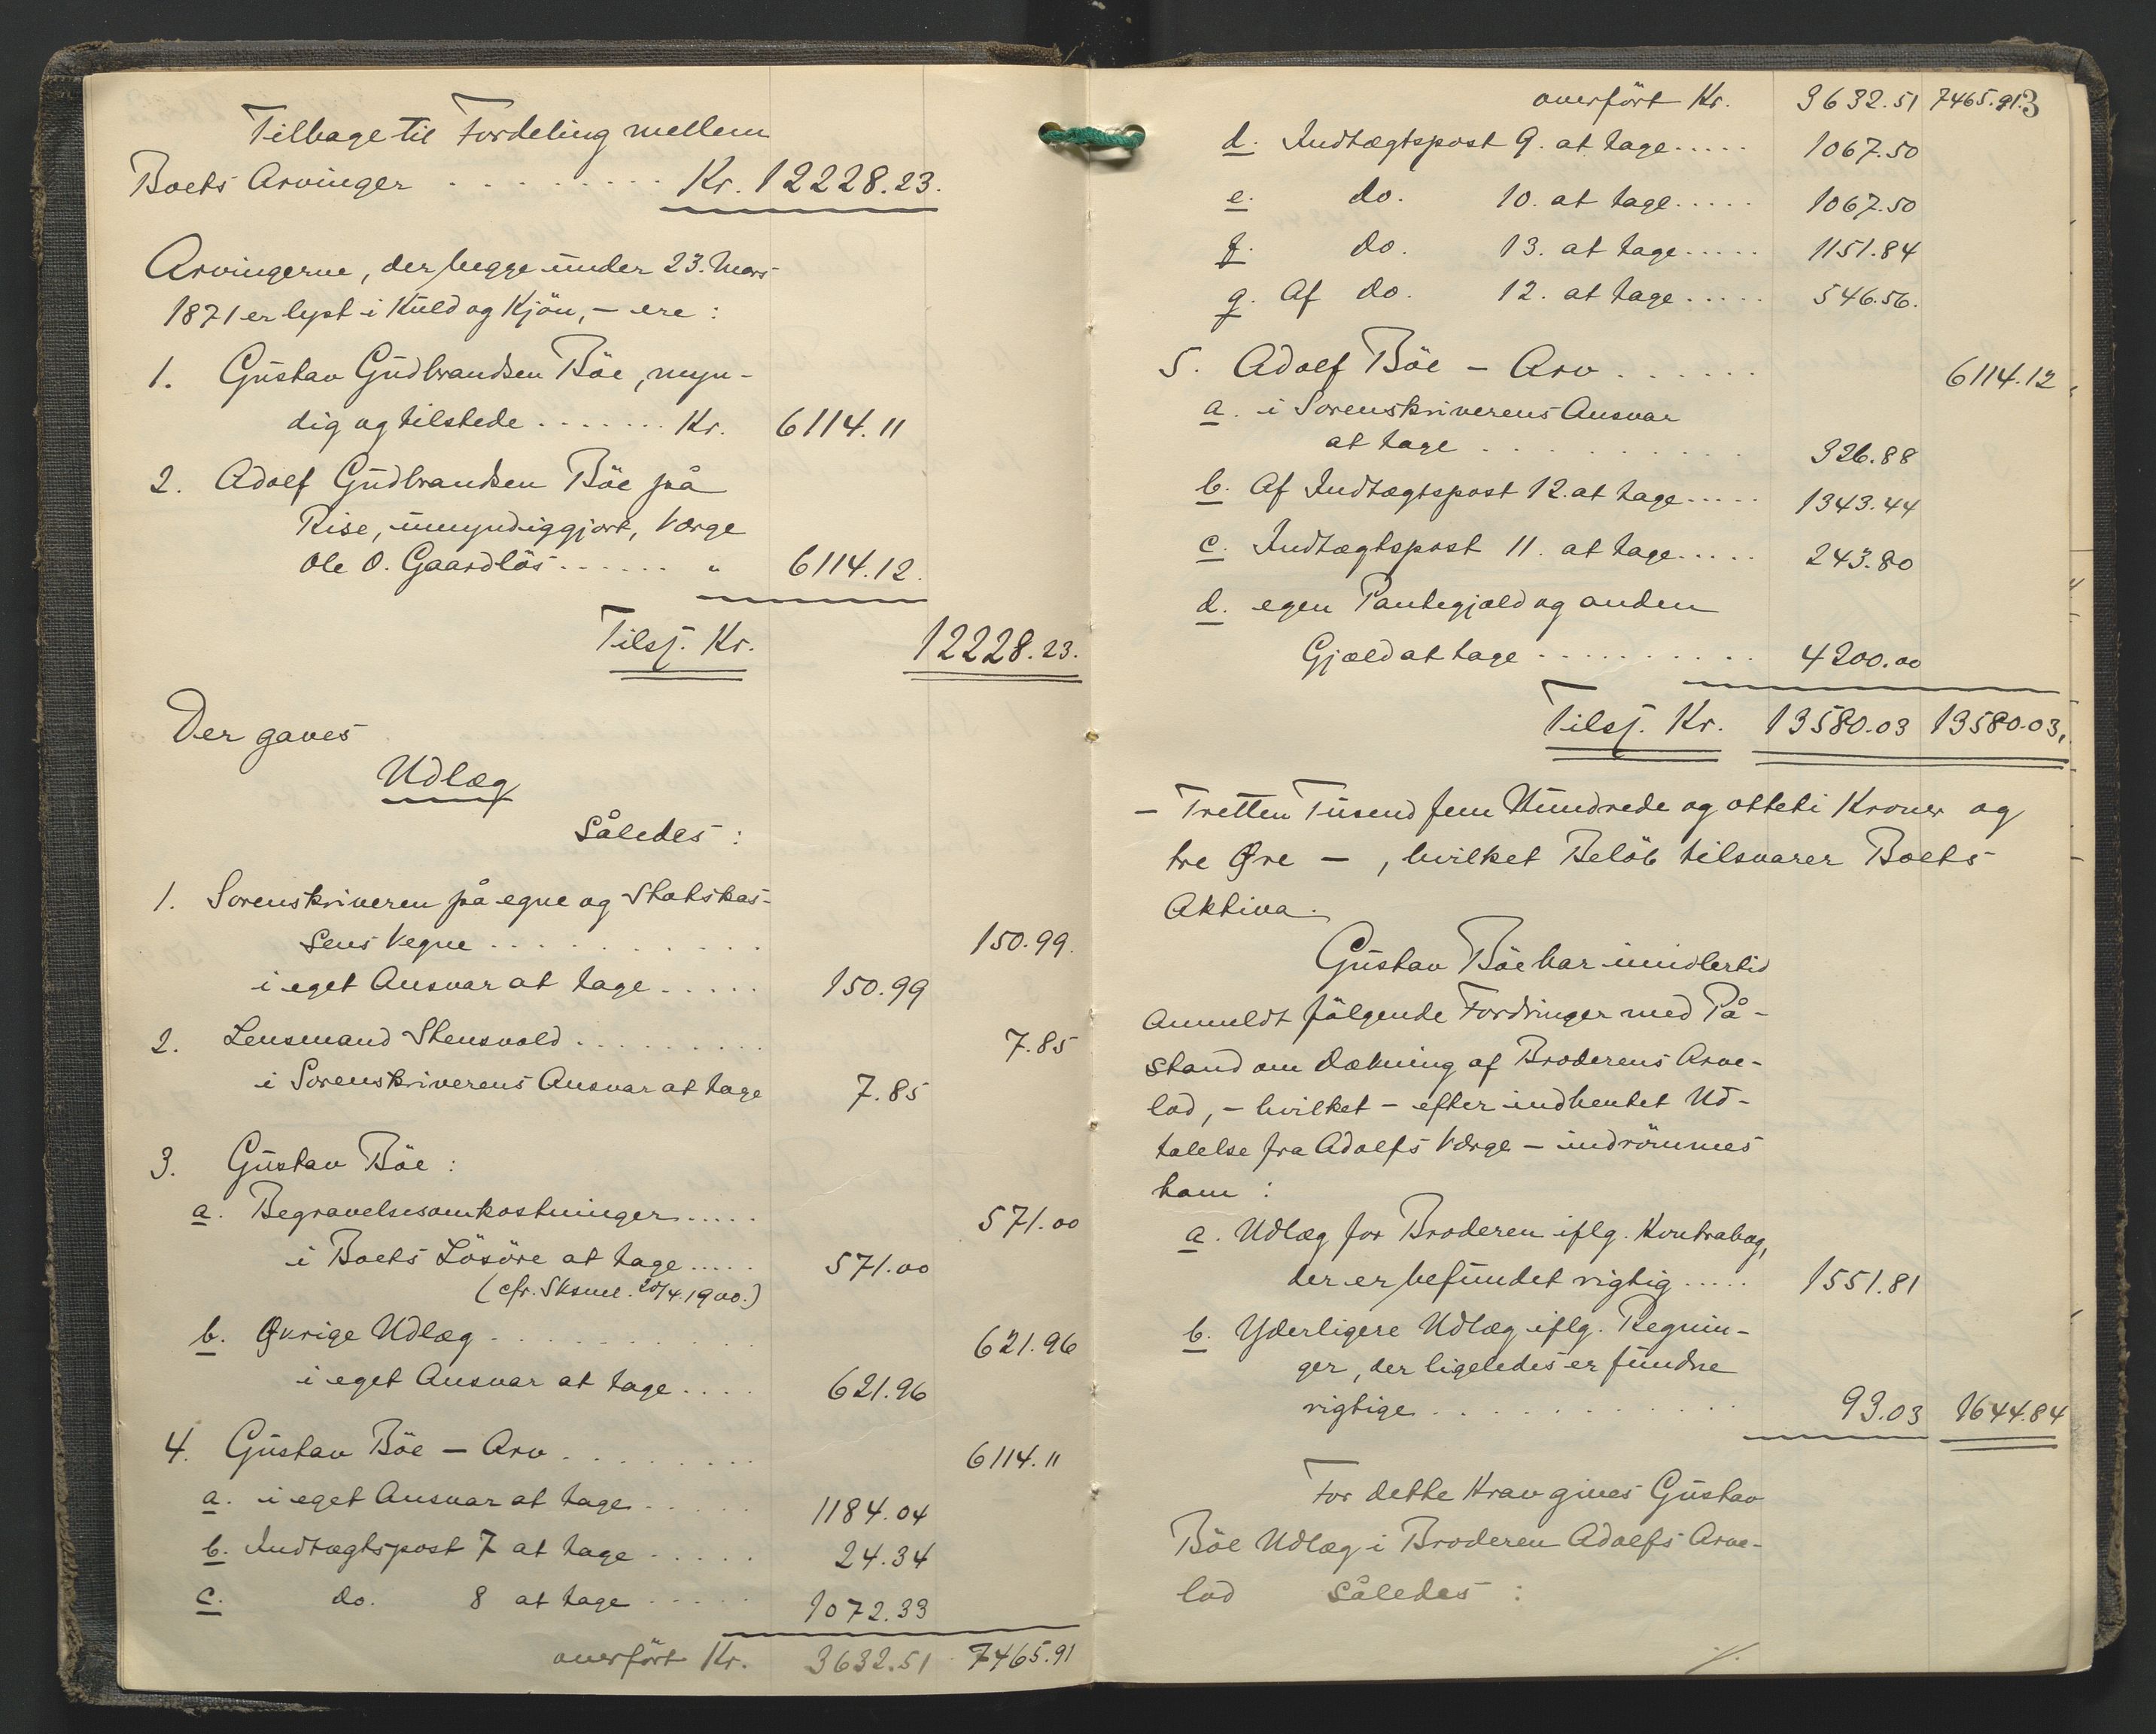 Tilbage til Fordeling mellem
Boets Arvinger . . . . . . . . . Kr. 12228.23.
Arvingerne, der begge under 23. Mars
1871 er lyst i Kuld og Kjön, – ere :
1. Gustav Gudbrandsen Böe, myn-
dig og tilstede . . . . . . . Kr. 6114.11
2. Adolf Gudbrandsen Böe på
Rise, umyndiggjort, Værge
Ole O. Gaardlös . . . . . . " 6114.12.
Tils. Kr. 12228.23.
Der gaves
Udlæg
Således :
1. Sorenskriveren på egne og Statskas-
sens Vegne . . . . . . . . . . . 150.99.
i eget Ansvar at tage . . . . . 150.99
2. Lensmand Stensvold . . . . . . . . . 7.85
i Sorenskriverens Ansvar at tage 7.85
3. Gustav Böe :
a. Begravelsesomkostninger . . . . . 571.00
i Boets Lösöre at tage . . . . . 571.00
(cfr. Sksml. 20/4.1900.)
b. Øvrige Udlæg . . . . . . . . . . 621.96
i eget Ansvar at tage . . . . 621.96
4. Gustav Böe – Arv . . . . . . . . . 6114.11
a. i eget Ansvar at tage . . . . . 1184.04
b. Indtægtspost 7 at tage . . . . . 24.34
c. do. 8 at tage . . . . . 1072.33
overfört Kr. 3632.51 7465.91
3
overfört Kr. 3632.51 7465.91
d. Indtægtspost 9. at tage . . . . . 1067.50
e. do. 10. at tage . . . . . 1067.50
f. do. 13. at tage . . . . . 1151.84
g. Af do. 12. at tage . . . . . 546.56.
5. Adolf Böe – Arv . . . . . . 6114.12
a. i Sorenskriverens Ansvar
at tage . . . . . . . . . . . 326.88
b. Af Indtægtspost 12. at tage . . . . . 1343.44
c. Indtægtspost 11. at tage . . . . . 243.80
d. egen Pantegjæld og anden
Gjæld at tage . . . . . . . . . . 4200.00
Tils. Kr. 13580.03 13580.03,
– Tretten Tusend fem Hundrede og otteti Kroner og
tre Øre – , hvilket Belöb tilsvarer Boets
Aktiva.
Gustav Böe har imidlertid
anmeldt fölgende Fordringer med På-
stand om Dækning af Broderens Arve-
lod, – hvilket – efter indhentet Ud-
talelse fra Adolfs Værge – indrömmes
ham :
a. Udlæg for Broderen iflg. Kontrabog,
der er befundet rigtig . . . . . 1551.81
b. Yderligere Udlæg iflg. Regnin-
ger, der ligeledes er fundne
rigtige . . . . . . . . . . . . 93.03 1644.84
For dette Krav gives Gustav
Böe Udlæg i Broderen Adolfs Arve-
lod Således :
./.